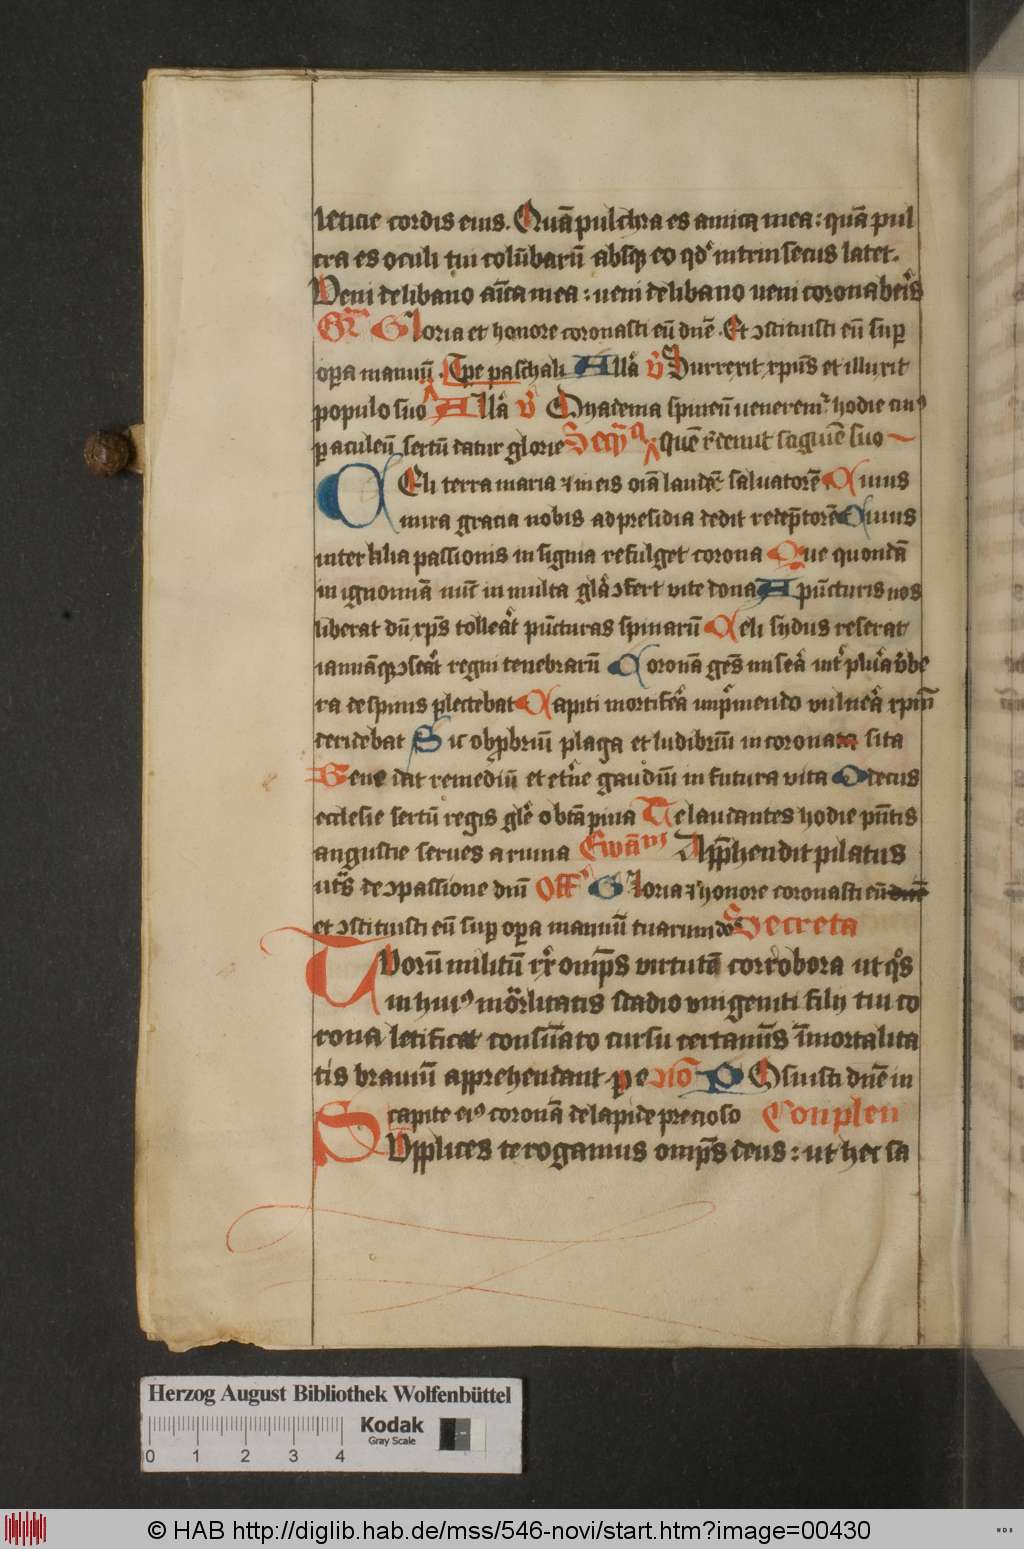 leticie cordis eius. Quā pulchra es amica mea: quā pul
cra es oculi tui colūbarū absq; eo qd' intrinsecus latet.
Veni de libano aīca mea: ueni de libano ueni coronaber̄s
Gr̄m Gloria et honore coronasti eū dn̄e. Et ↄstituisti eū sup̄
op̄a manuū. Tp̄e paschali All'a v̄ Surrexit xp̄us et illuxit
populo suo All'a v̄ Dyadema spineū ueneremr̄ hodie cui⁹
p aculeū sertū datur glorie Seq̄ quē redemit sāguīe suo
Celi terra maria ⁊ in eis oīa laudēt saluatorē Quius
mira gracia nobis ad presidia dedit redēptorē Cuius
inter kl'ia passionis insignia refulget corona Que quondā
in ignomiā nūc in multa gl'a ↄfert vite dona A pūcturis nos
liberat dū xp̄s tolleāt pūcturas spinarū Celi sydus reserat
ianuā q; ↄseāt regni tenebrarū Coronā gēs
ra de spinis plectebat Capiti mortifēa imp̄mendo vulnēa xpm̄
deridebat Sic obp̄briū plaga et ludibriū in coronata sita
Gene dat remediū et et'ne gaudiū in futura vita O decus
ecclesie sertū regis gl'e
Te laudantes hodie pn̄tis
angustie serues a ruina Ewām App̄hendit pilatus
ut s̄ de ↄpassione dn̄i Off' Gloria ⁊ honore coronasti eū dn̄e
et ↄstituisti eū sup̄ op̄a manuū tuarum do Secreta
Tuorū militū rx̄ omp̄s virtutē corrobora ut q̄s
in hui⁹ mōrlitatis stadio vnigeniti filij tui co
rona letificat consūato cursu certamīs īmortalita
tis brauiū apprehendant. p e
Cōo Posuisti dn̄e in
capite ei⁹ coronā de lapide precioso Conplen
Supplices te rogamus omp̄s deus: ut hec sa
Herzog August Bibliothek Wolfenbüttel
Kodak
Gray Scale
0 1 2 3 4
© HAB http://diglib.hab.de/mss/546-novi/start.htm?image=00430